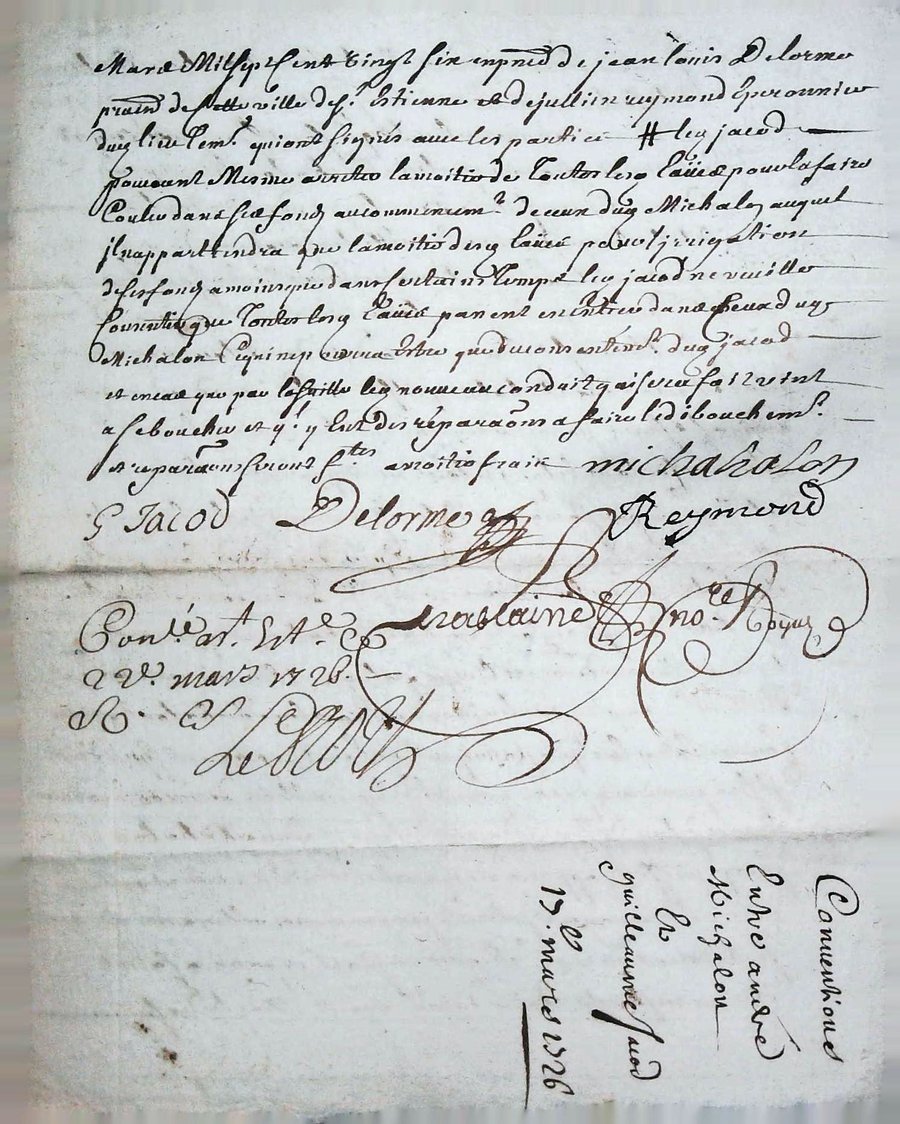 Mars Mil Sept Cent vingt six en pnce de jean louis Delorme
pratn de Cette ville de St Estienne et de jullien reymond Eperonnier
dud lieu tem. qui ont signés avec les parties # led jacod
pouvant Mesme arreter la moitié de Toutes lesd Eaües pour la faire
Couler dans ses fonds au commencemt de ceux dud Michalon auquel
jl nappartiendra que la moitié desd Eaües pour l'jrrigation
de ses fonds a moins que dans certains temps led jacod ne veuille
Consentir que Toutes lesd Eaües passent en Entier dans Ceux dud
Michalon Ce qui ne pourra Estre que du consentemt dud jacod
et en cas que par la suitte led nouveau conduit qui sera fait vint
a se boucher et ql y Eut des réparaõns a faire led debouchemt
et reparaõns seront ftes a moitié frais michahalon
G Jacod Delorme Reymond
Conlé a St Ete Ce
22e mars 1726. nore Royal
R.
Conventions
Entre andré
Michalon
Et
guilleaume Jacod
17e mars 1726